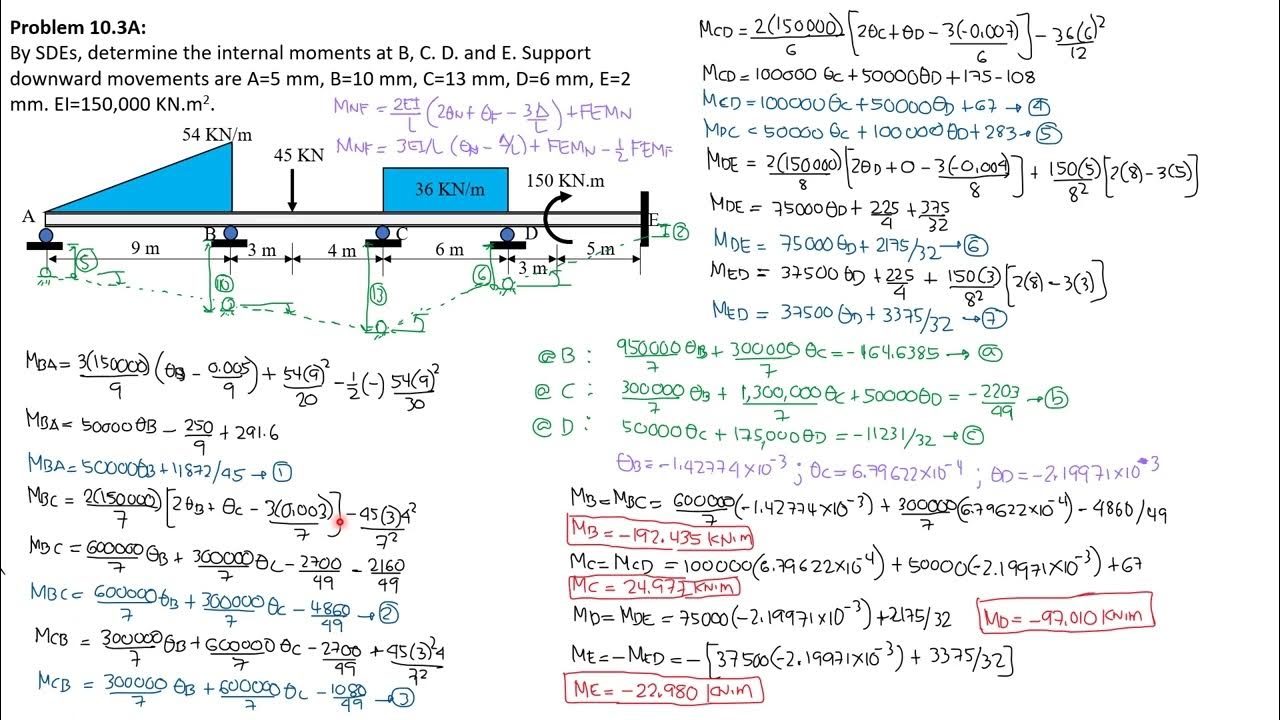 Problem 10.3A:
By SDEs, determine the internal moments at B, C. D. and E. Support
downward movements are A=5 mm, B=10 mm, C=13 mm, D=6 mm, E=2
mm. EI=150,000 KN.m².
MNF = 2EI/L (2θN + θF - 3Δ/L) + FEMN
MNF = 3EI/L (θN - Δ/L) + FEMN - 1/2 FEMF
54 KN/m
45 KN
36 KN/m
150 KN.m
A
B
C
D
E
9 m
3 m
4 m
6 m
3 m
5 m
5
10
13
6
2
MBA = 3(150000)/9 (θB - 0.005/9) + 54(9)²/20 - 1/2 (-) 54(9)²/30
MBA = 50000θB - 250/9 + 291.6
MBA = 50000θB + 11872/45 → ①
MBC = 2(150000)/7 [2θB + θC - 3(0.003)/7] - 45(3)4²/7²
MBC = 600000/7 θB + 300000/7 θC - 2700/49 - 2160/49
MBC = 600000/7 θB + 300000/7 θC - 4860/49 → ②
MCB = 300000/7 θB + 600000/7 θC - 2700/49 + 45(3)²4/7²
MCB = 300000/7 θB + 600000/7 θC - 1080/49 → ③
MCD = 2(150000)/6 [2θC + θD - 3(-0.007)/6] - 36(6)²/12
MCD = 100000 θC + 50000θD + 175 - 108
MCD = 100000 θC + 50000θD + 67 → ④
MDC = 50000 θC + 100000 θD + 283 → ⑤
MDE = 2(150000)/8 [2θD + 0 - 3(-0.004)/8] + 150(5)/8² [2(8) - 3(5)]
MDE = 75000θD + 225/4 + 375/32
MDE = 75000θD + 2175/32 → ⑥
MED = 37500θD + 225/4 + 150(3)/8² [2(8) - 3(3)]
MED = 37500 θD + 3375/32 → ⑦
@ B : 950000/7 θB + 300000/7 θC = -164.6385 → ⓐ
@ C : 300000/7 θB + 1,300,000/7 θC + 50000θD = -2203/49 → ⓑ
@ D : 50000θC + 175,000θD = -11231/32 → ⓒ
θB = -1.42774×10⁻³ ; θC = 6.79622×10⁻⁴ ; θD = -2.19971×10⁻³
MB = MBC = 600000/7 (-1.42774×10⁻³) + 300000/7 (6.79622×10⁻⁴) - 4860/49
MB = -192.435 KN.m
MC = MCD = 100000(6.79622×10⁻⁴) + 50000(-2.19971×10⁻³) + 67
MC = 24.977 KN.m
MD = MDE = 75000(-2.19971×10⁻³) + 2175/32 MD = -97.010 KN.m
ME = -MED = -[37500(-2.19971×10⁻³) + 3375/32]
ME = -22.980 KN.m